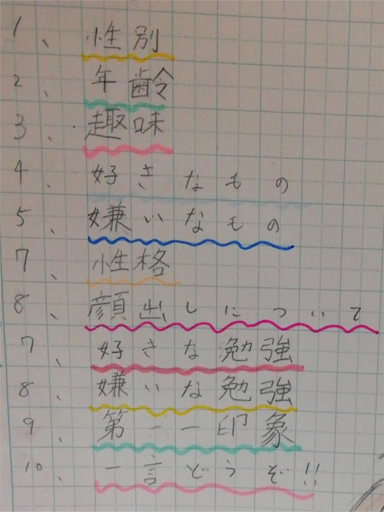 1、性別
2、年齢
3、趣味
4、好きなもの
5、嫌いなもの
7、性格
8、顔出しについて
7、好きな勉強
8、嫌いな勉強
9、第一印象
10、一言どうぞ!!